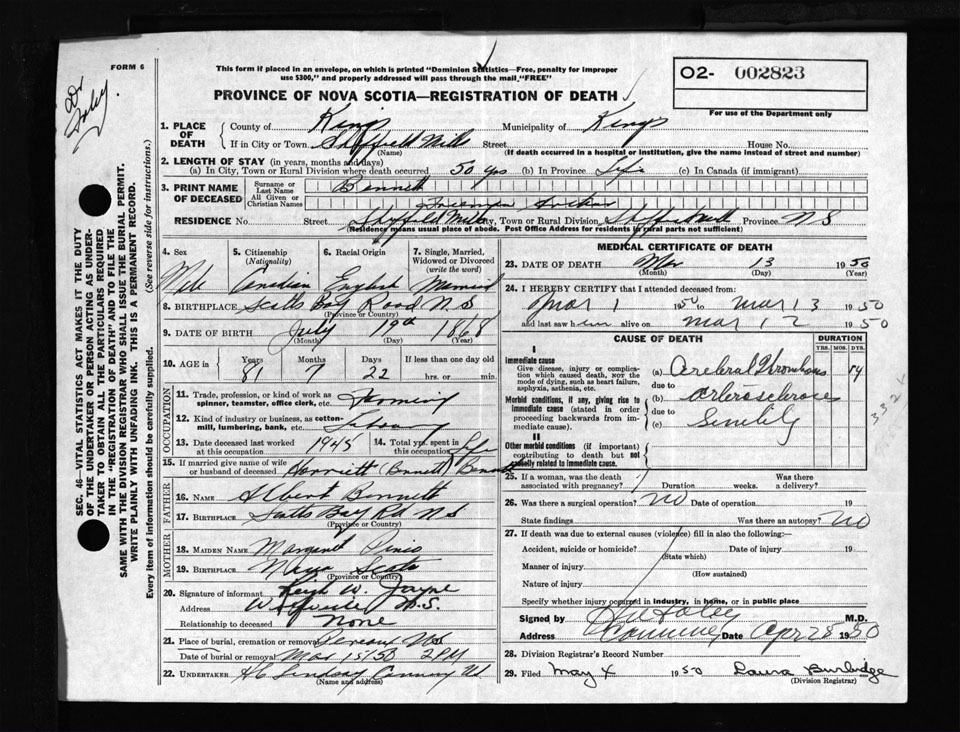 Dr Foley.
FORM 6
This form if placed in an envelope, on which is printed "Dominion Statistics—Free, penalty for improper
use $300," and properly addressed will pass through the mail, "FREE"
PROVINCE OF NOVA SCOTIA—REGISTRATION OF DEATH
O2- 002823
For use of the Department only
SEC. 46—VITAL STATISTICS ACT MAKES IT THE DUTY
OF THE UNDERTAKER OR PERSON ACTING AS UNDER-
TAKER TO OBTAIN ALL THE PARTICULARS REQUIRED
IN THE "REGISTRATION OF DEATH" AND TO FILE THE
SAME WITH THE DIVISION REGISTRAR WHO SHALL ISSUE THE BURIAL PERMIT.
WRITE PLAINLY WITH UNFADING INK. THIS IS A PERMANENT RECORD.
Every item of information should be carefully supplied. (See reverse side for instructions.)
1. PLACE OF DEATH
County of Kings Municipality of Kings
If in City or Town Sheffield Mills Street House No.
(Name) (If death occurred in a hospital or institution, give the name instead of street and number)
2. LENGTH OF STAY (in years, months and days)
(a) In City, Town or Rural Division where death occurred 50 yrs (b) In Province Life (c) In Canada (if immigrant)
3. PRINT NAME OF DECEASED
Surname or Last Name Bennett
All Given or Christian Names
RESIDENCE No. Street Sheffield Mills City, Town or Rural Division Sheffield Mills Province N S
(Residence means usual place of abode. Post Office Address for residents in rural parts not sufficient)
4. Sex 5. Citizenship (Nationality) 6. Racial Origin 7. Single, Married, Widowed or Divorced (write the word)
Male Canadian English Married
8. BIRTHPLACE Scotts Bay Road N.S
(Province or Country)
9. DATE OF BIRTH July 19th 1868
(Month) (Day) (Year)
10. AGE in Years Months Days If less than one day old
81 7 22 hrs. or min.
OCCUPATION
11. Trade, profession, or kind of work as spinner, teamster, office clerk, etc. Farming
12. Kind of industry or business, as cotton-mill, lumbering, bank, etc. Labouring
13. Date deceased last worked at this occupation 1945 14. Total yrs. spent in this occupation Life
15. If married give name of wife or husband of deceased Harriett (Bennett) Bennett
FATHER
16. NAME Albert Bennett
17. BIRTHPLACE Scotts Bay Rd N S
(Province or Country)
MOTHER
18. MAIDEN NAME Margaret
19. BIRTHPLACE Nova Scotia
(Province or Country)
20. Signature of informant W. Jayne
Address N.S.
Relationship to deceased None
21. Place of burial, cremation or removal Pereau NS
Date of burial or removal Mar 15/50 2PM
22. UNDERTAKER H C Lindsay Canning NS
(Name and address)
MEDICAL CERTIFICATE OF DEATH
23. DATE OF DEATH Mar 13 1950
(Month) (Day) (Year)
24. I HEREBY CERTIFY that I attended deceased from:
Mar 1 1950 to Mar 13 1950
and last saw him alive on Mar 12 1950
CAUSE OF DEATH DURATION
YRS. MOS. DYS.
I
Immediate cause
Give disease, injury or complication which caused death, not the mode of dying, such as heart failure, asphyxia, asthenia, etc.
(a) Cerebral Thrombosis 14
due to
Morbid conditions, if any, giving rise to immediate cause (stated in order proceeding backwards from immediate cause).
(b) arteriosclerosis
due to
(c) Senility
332 X
II
Other morbid conditions (if important) contributing to death but not causally related to immediate cause.
25. If a woman, was the death associated with pregnancy? Duration weeks. Was there a delivery?
26. Was there a surgical operation? No Date of operation 19
State findings Was there an autopsy? No
27. If death was due to external causes (violence) fill in also the following:
Accident, suicide or homicide? Date of injury 19
(State which)
Manner of injury
(How sustained)
Nature of injury
Specify whether injury occurred in industry, in home, or in public place
Signed by Foley M.D.
Address Canning Date Apr 28 1950
28. Division Registrar's Record Number
29. Filed May 4 1950 Laura Burbidge
(Division Registrar)